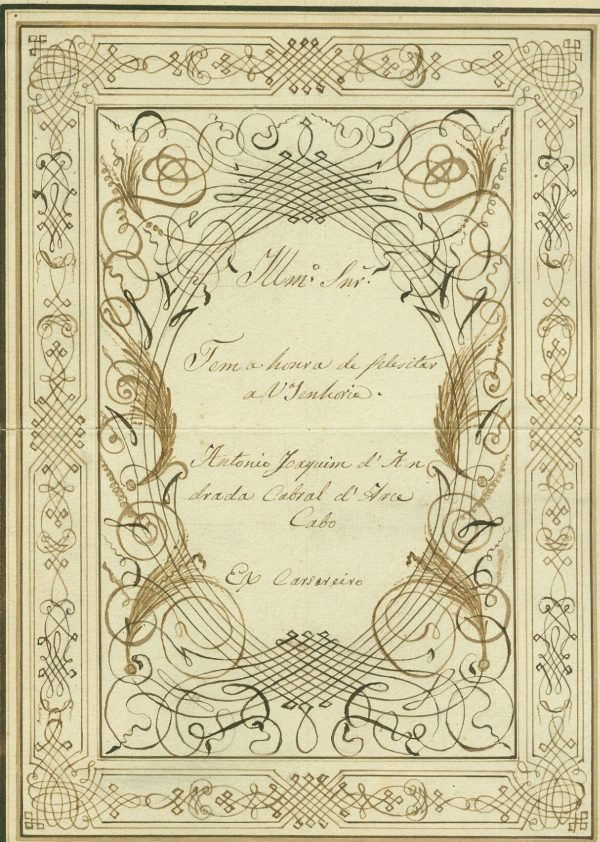 Illmº Snr.
Tem a honra de felesitar
a Vª Senhoria.
Antonio Joaquim d' An
drada Cabral d' Arce
Cabo
Ex Carsareiro